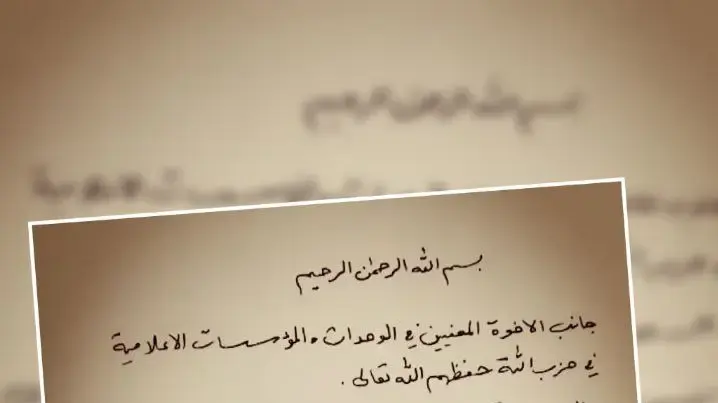 بسم الله الرحمن الرحيم
جانب الاخوة المعنيين في الوحدات والمؤسسات الاعلامية
في حزب الله حفظهم الله تعالى .